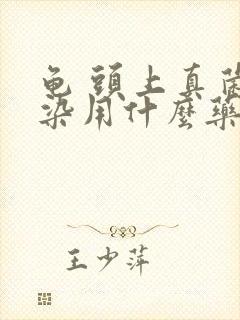 龟头上真菌
染用什麼藥
王少萍